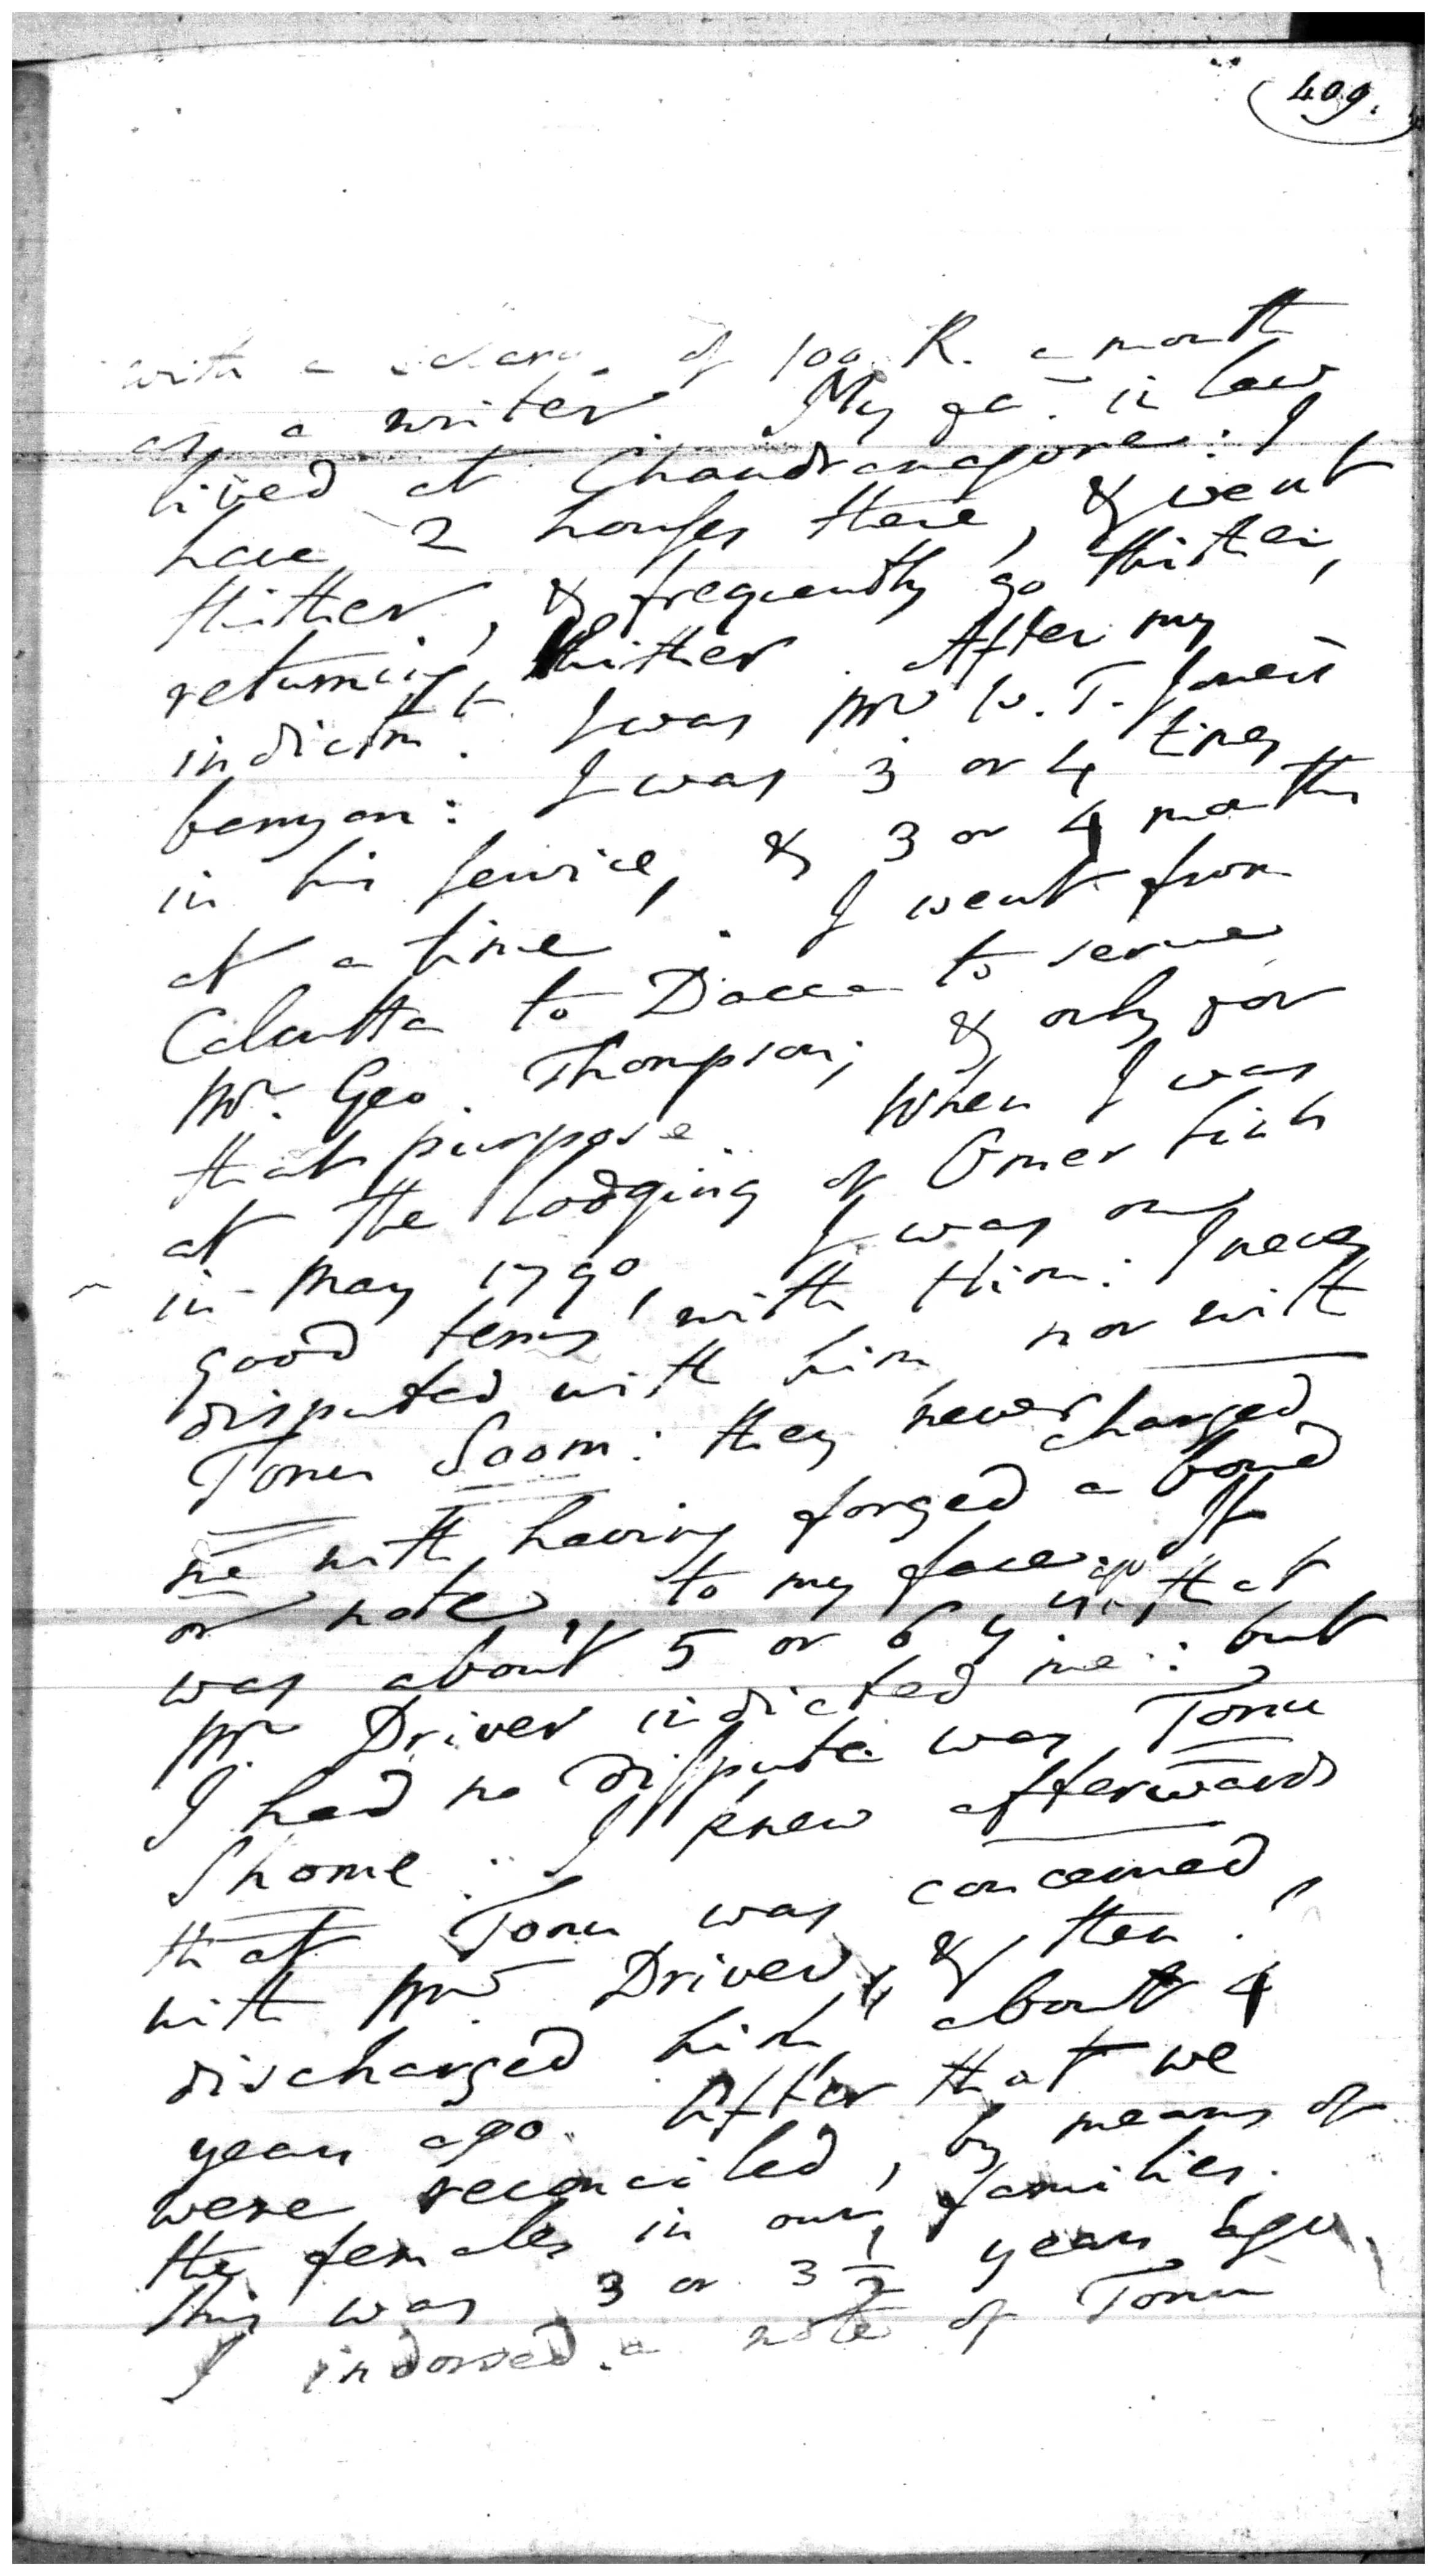 409.
with a salary of 100 R. a month
as a writer. My fa. in law
lived at Chandranagore: I
have 2 houses there, & went
thither, & frequently go thither,
returning hither. After my
indictmt. I was Mr W. T. Jones's
banyan: I was 3 or 4 times
in his service, & 3 or 4 months
at a time. I went from
Calcutta to Dacca to serve
Mr. Geo. Thompson; & only for
that purpose. When I was
at the lodging of Omer
in May 1790, I was on
good terms with him: I never
disputed with him, nor with
Tonu Soom: they never charged
me with having forged a bond
or note, to my face. It
was about 5 or 6 y. ago that
Mr. Driver indicted me: but
I had no dispute was Tonu
Shome: I knew afterwards
that Tonu was concerned
with Mr. Driver, & then
discharged him, about 4
years ago. After that we
were reconciled, by means of
the females in our families.
This was 3 or 3 1/2 years ago.
I indorsed a note of Tonu